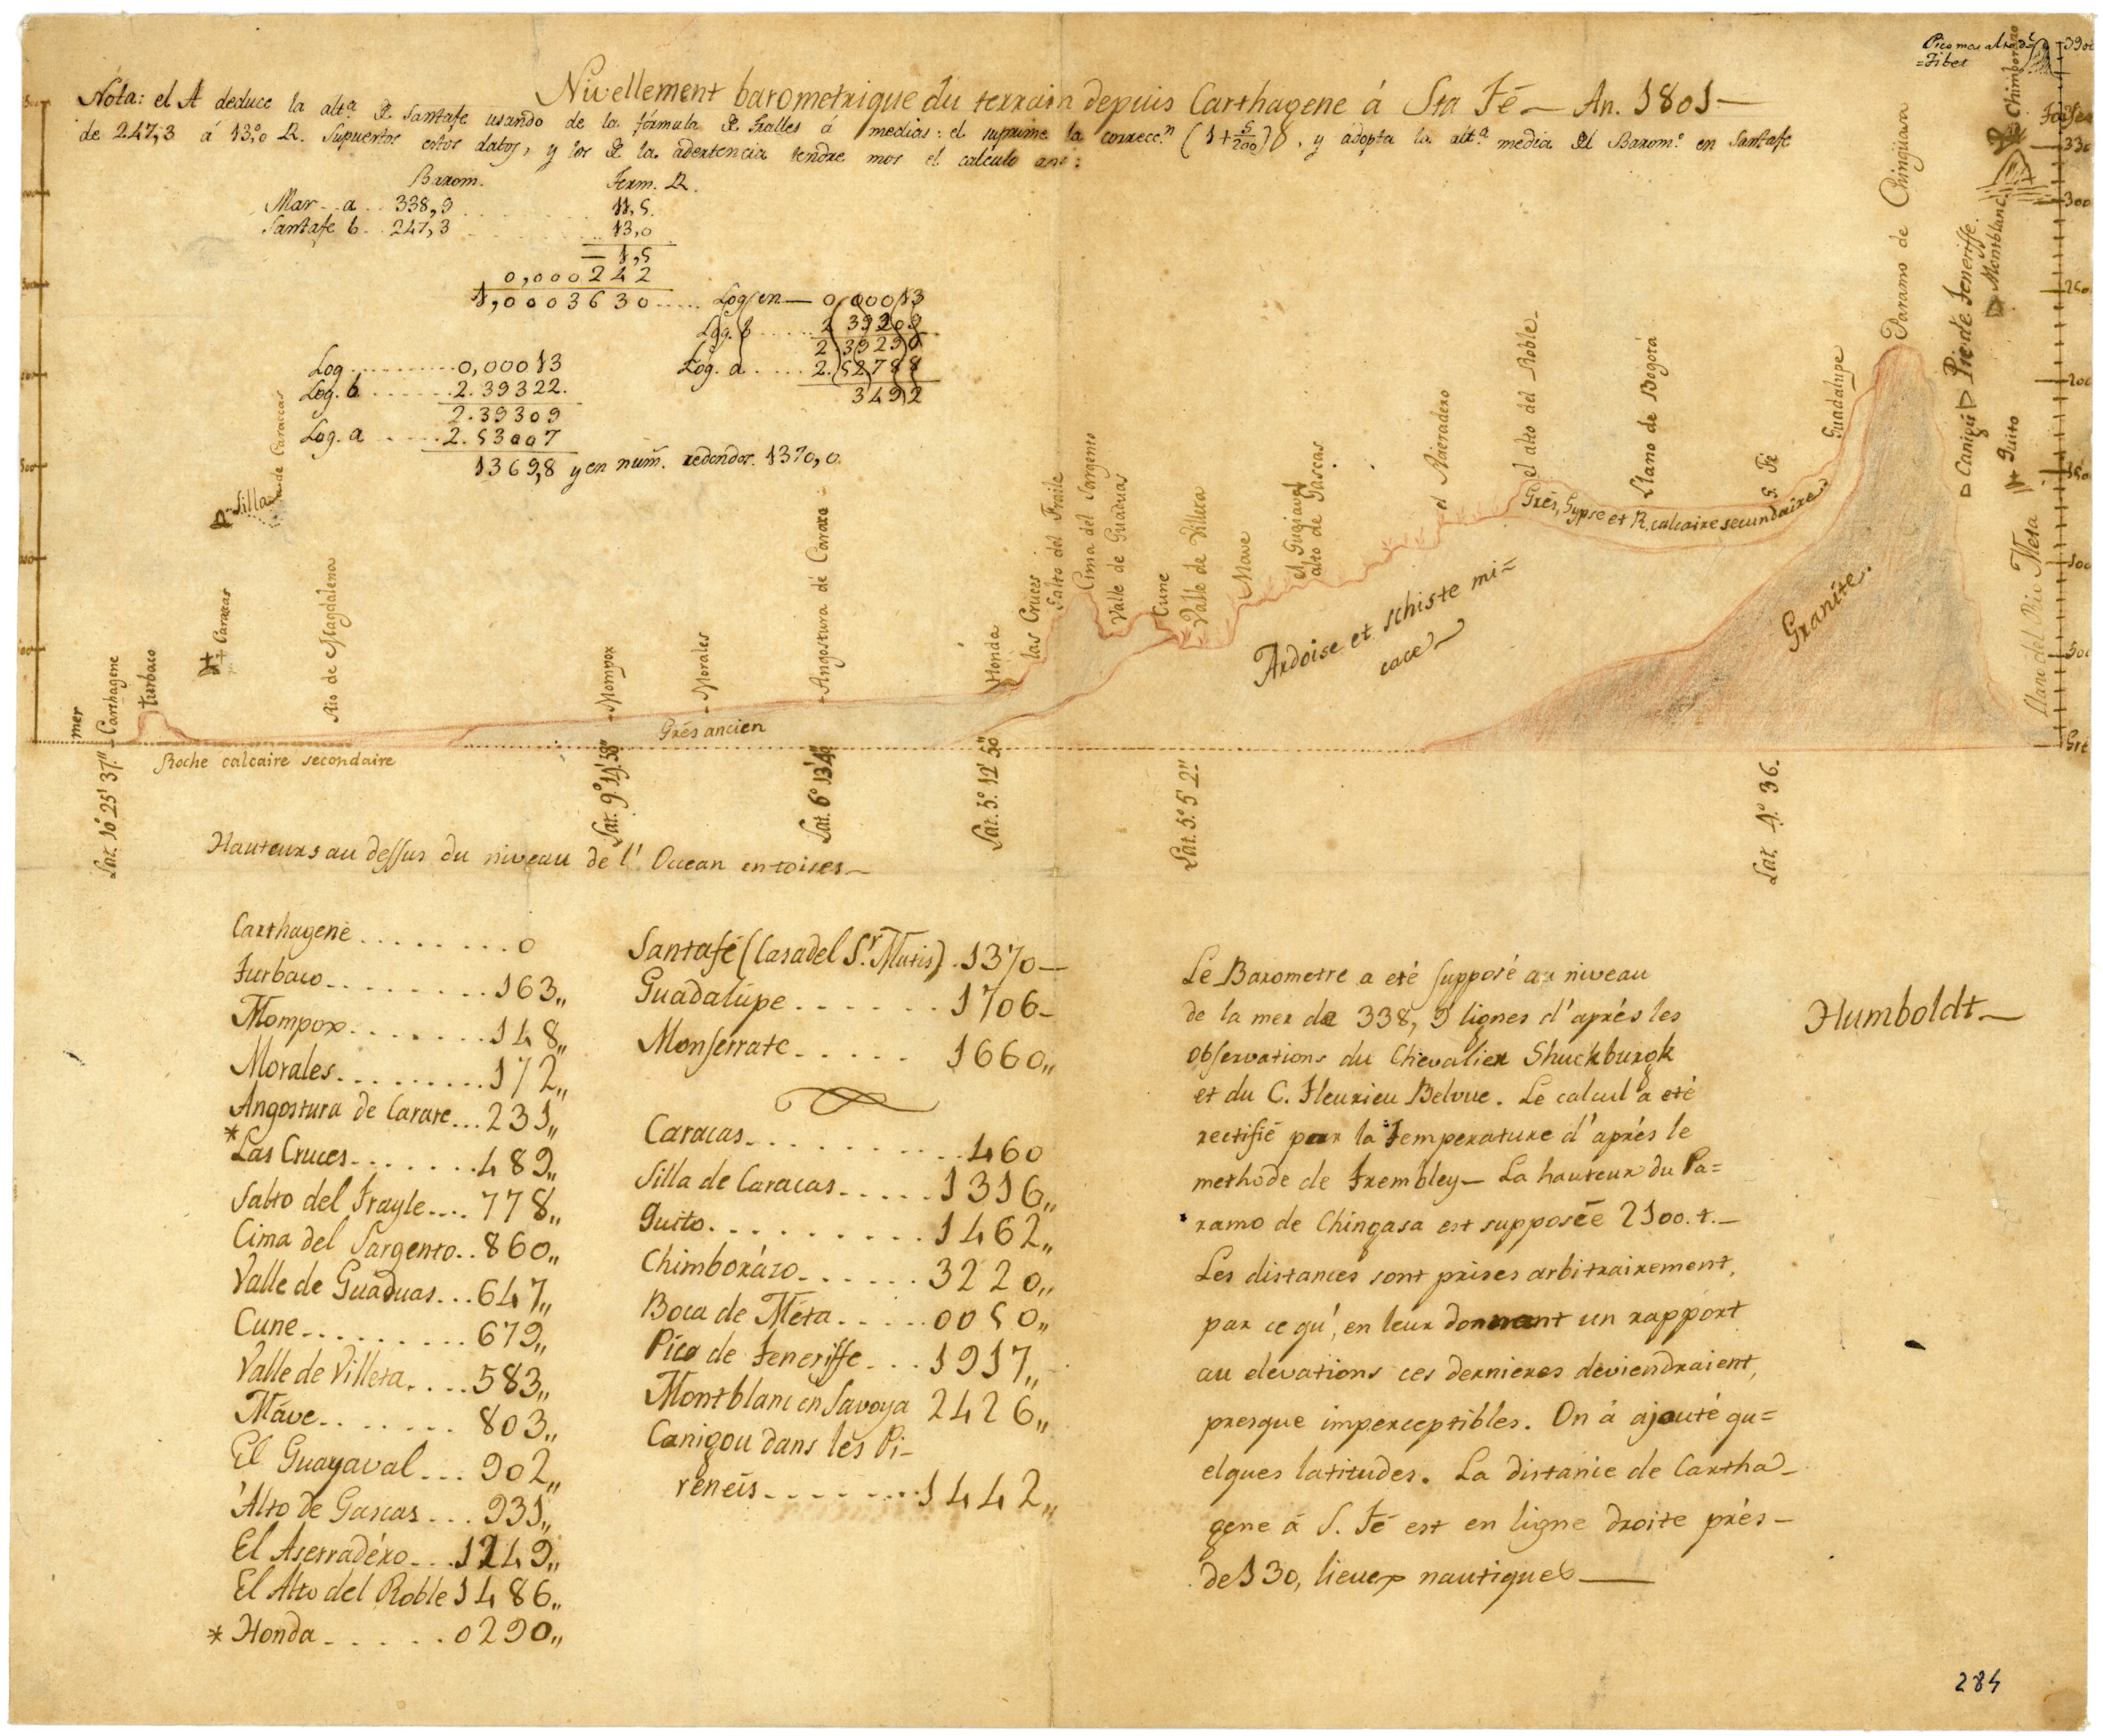 Nivellement barometrique du terrain depuis Carthagene á Sta Fé — An. 1801 —
Nota: el A deduce la altª de Santafe usando de la fórmula de Tralles á medias: el suprime la correccⁿ (1+5/200), y adopta la altª media del Baromº en Santafe
de 247,3 á 13,0 R. Supuestos estos datos, y los de la adertencia tendre mos el calculo asi:
Barom. Term. R.
Mar a 338,9 11,5.
Santafe b. 247,3 13,0
— 1,5
0,000242
1,0003630 Log en — 0,00013
Log. b 2 39209
2 39290
Log. a 2. 52788
3492
Log 0,00013
Log. b 2.39322.
2.39309
Log. a 2.53007
1369,8 y en num. redondos. 1370,0
Pico mas alto del
=Tibet
3900
Toises
330
300
250
200
150
100
500
mer
Carthagene
Turbaco
Caracas
Silla de Caracas
Rio de Magdalena
Mompox
Morales
Angostura de Carare
Honda
las Cruces
Salto del Fraile
Cima del Sargento
Valle de Guaduas
Cune
Valle de Villeta
Mave
el Guaiaval
alto de Gascas
el Aseradero
el alto del Roble
Llano de Bogotá
S. Fé
Guadalupe
Paramo de Chingasa
Canigú
Pic de Teneriffe.
Montblanc
Chimborazo
Quito
Llano del Rio Meta
Grés, Gypse et R. calcaire secundaire
Ardoise et schiste mi=
cacé
Granite.
Grés ancien
Roche calcaire secondaire
Lat. 10° 25' 37"
Lat. 9° 14' 58"
Lat. 6° 13' 40"
Lat. 5° 12' 50"
Lat. 5° 5' 2"
Lat. 4° 36.
Hauteurs au dessus du niveau de l'Ocean en toises —
Carthagene 0
Turbaco 163„
Mompox 148„
Morales 172„
Angostura de Carare 231„
*Las Cruces 489„
Salto del Frayle 778„
Cima del Sargento 860„
Valle de Guaduas 647„
Cune 679„
Valle de Villeta 583„
Máve 803„
El Guayaval 902„
Alto de Gascas 931„
El Aserradéro 1249„
El Alto del Roble 1486„
*Honda 0290„
Santafé (Casa del Sr. Mutis) 1370 —
Guadalúpe 1706 -
Monserrate 1660„
Caracas 460
Silla de Caracas 1316„
Quito 1462„
Chimborázo 3220„
Boca de Méta 0050„
Pico de Teneriffe 1917„
Montblanc en Savoya 2426„
Canigou dans les Pi-
reneis 1442„
Le Barometre a eté supposé au niveau
de la mer de 338,9 lignes d'aprés les
observations du Chevalier Shuckburgk
et du C. Fleurieu Belvue. Le calcul a eté
rectifié par la temperature d'aprés le
methode de Trembley — La hauteur du Pa=
ramo de Chingasa est supposée 2100. t. —
Les distances sont prises arbitrairement,
par ce qu', en leur donnant un rapport
au elevations ces dernieres deviendraient,
presque imperceptibles. On á ajouté qu=
elques latitudes. La distance de Cartha-
gene á S. Fé est en ligne droite prés-
de 130, lieues nautiques —
Humboldt —
284